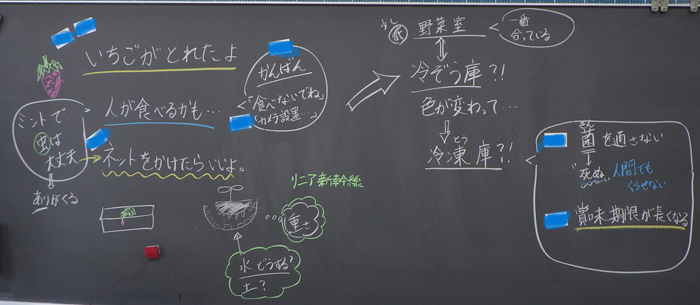 いちごがとれたよ
かんばん
「食べないでね」
カメラ設置…
人が食べるかも…
ミントで
虫は
大丈夫
ありがくる
ネットをかけたらいいよ。
リニア新幹線
重さ
水どうする?
土?
野菜室
一番
合っている
冷ぞう庫?!
色が変わって…
とう
冷凍庫?!
きん
菌を通さない
死ぬ
人間でも
くらせない
賞味期限が長くなる